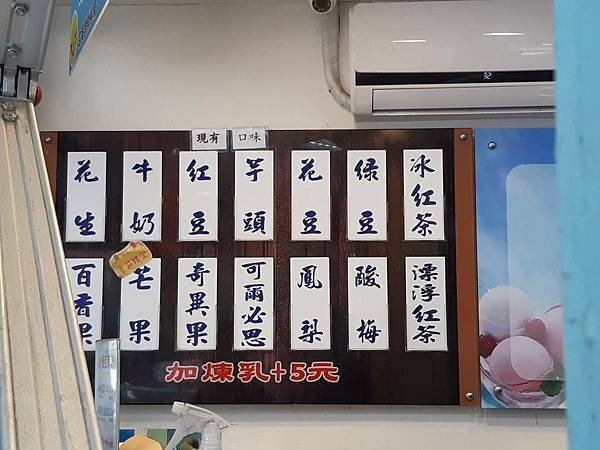 現有 口味
花生
牛奶
紅豆
芋頭
花豆
綠豆
冰紅茶
百香果
芒果
奇異果
可爾必思
鳳梨
酸梅
漂浮紅茶
加煉乳+5元